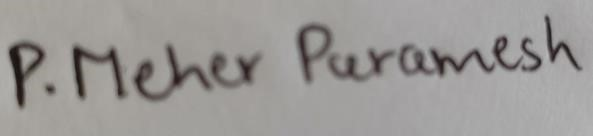 P. Meher Paramesh